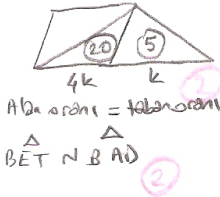 20 5
4k k
2
Alan oranı = taban oranı
△ △
BET ~ BAD
2